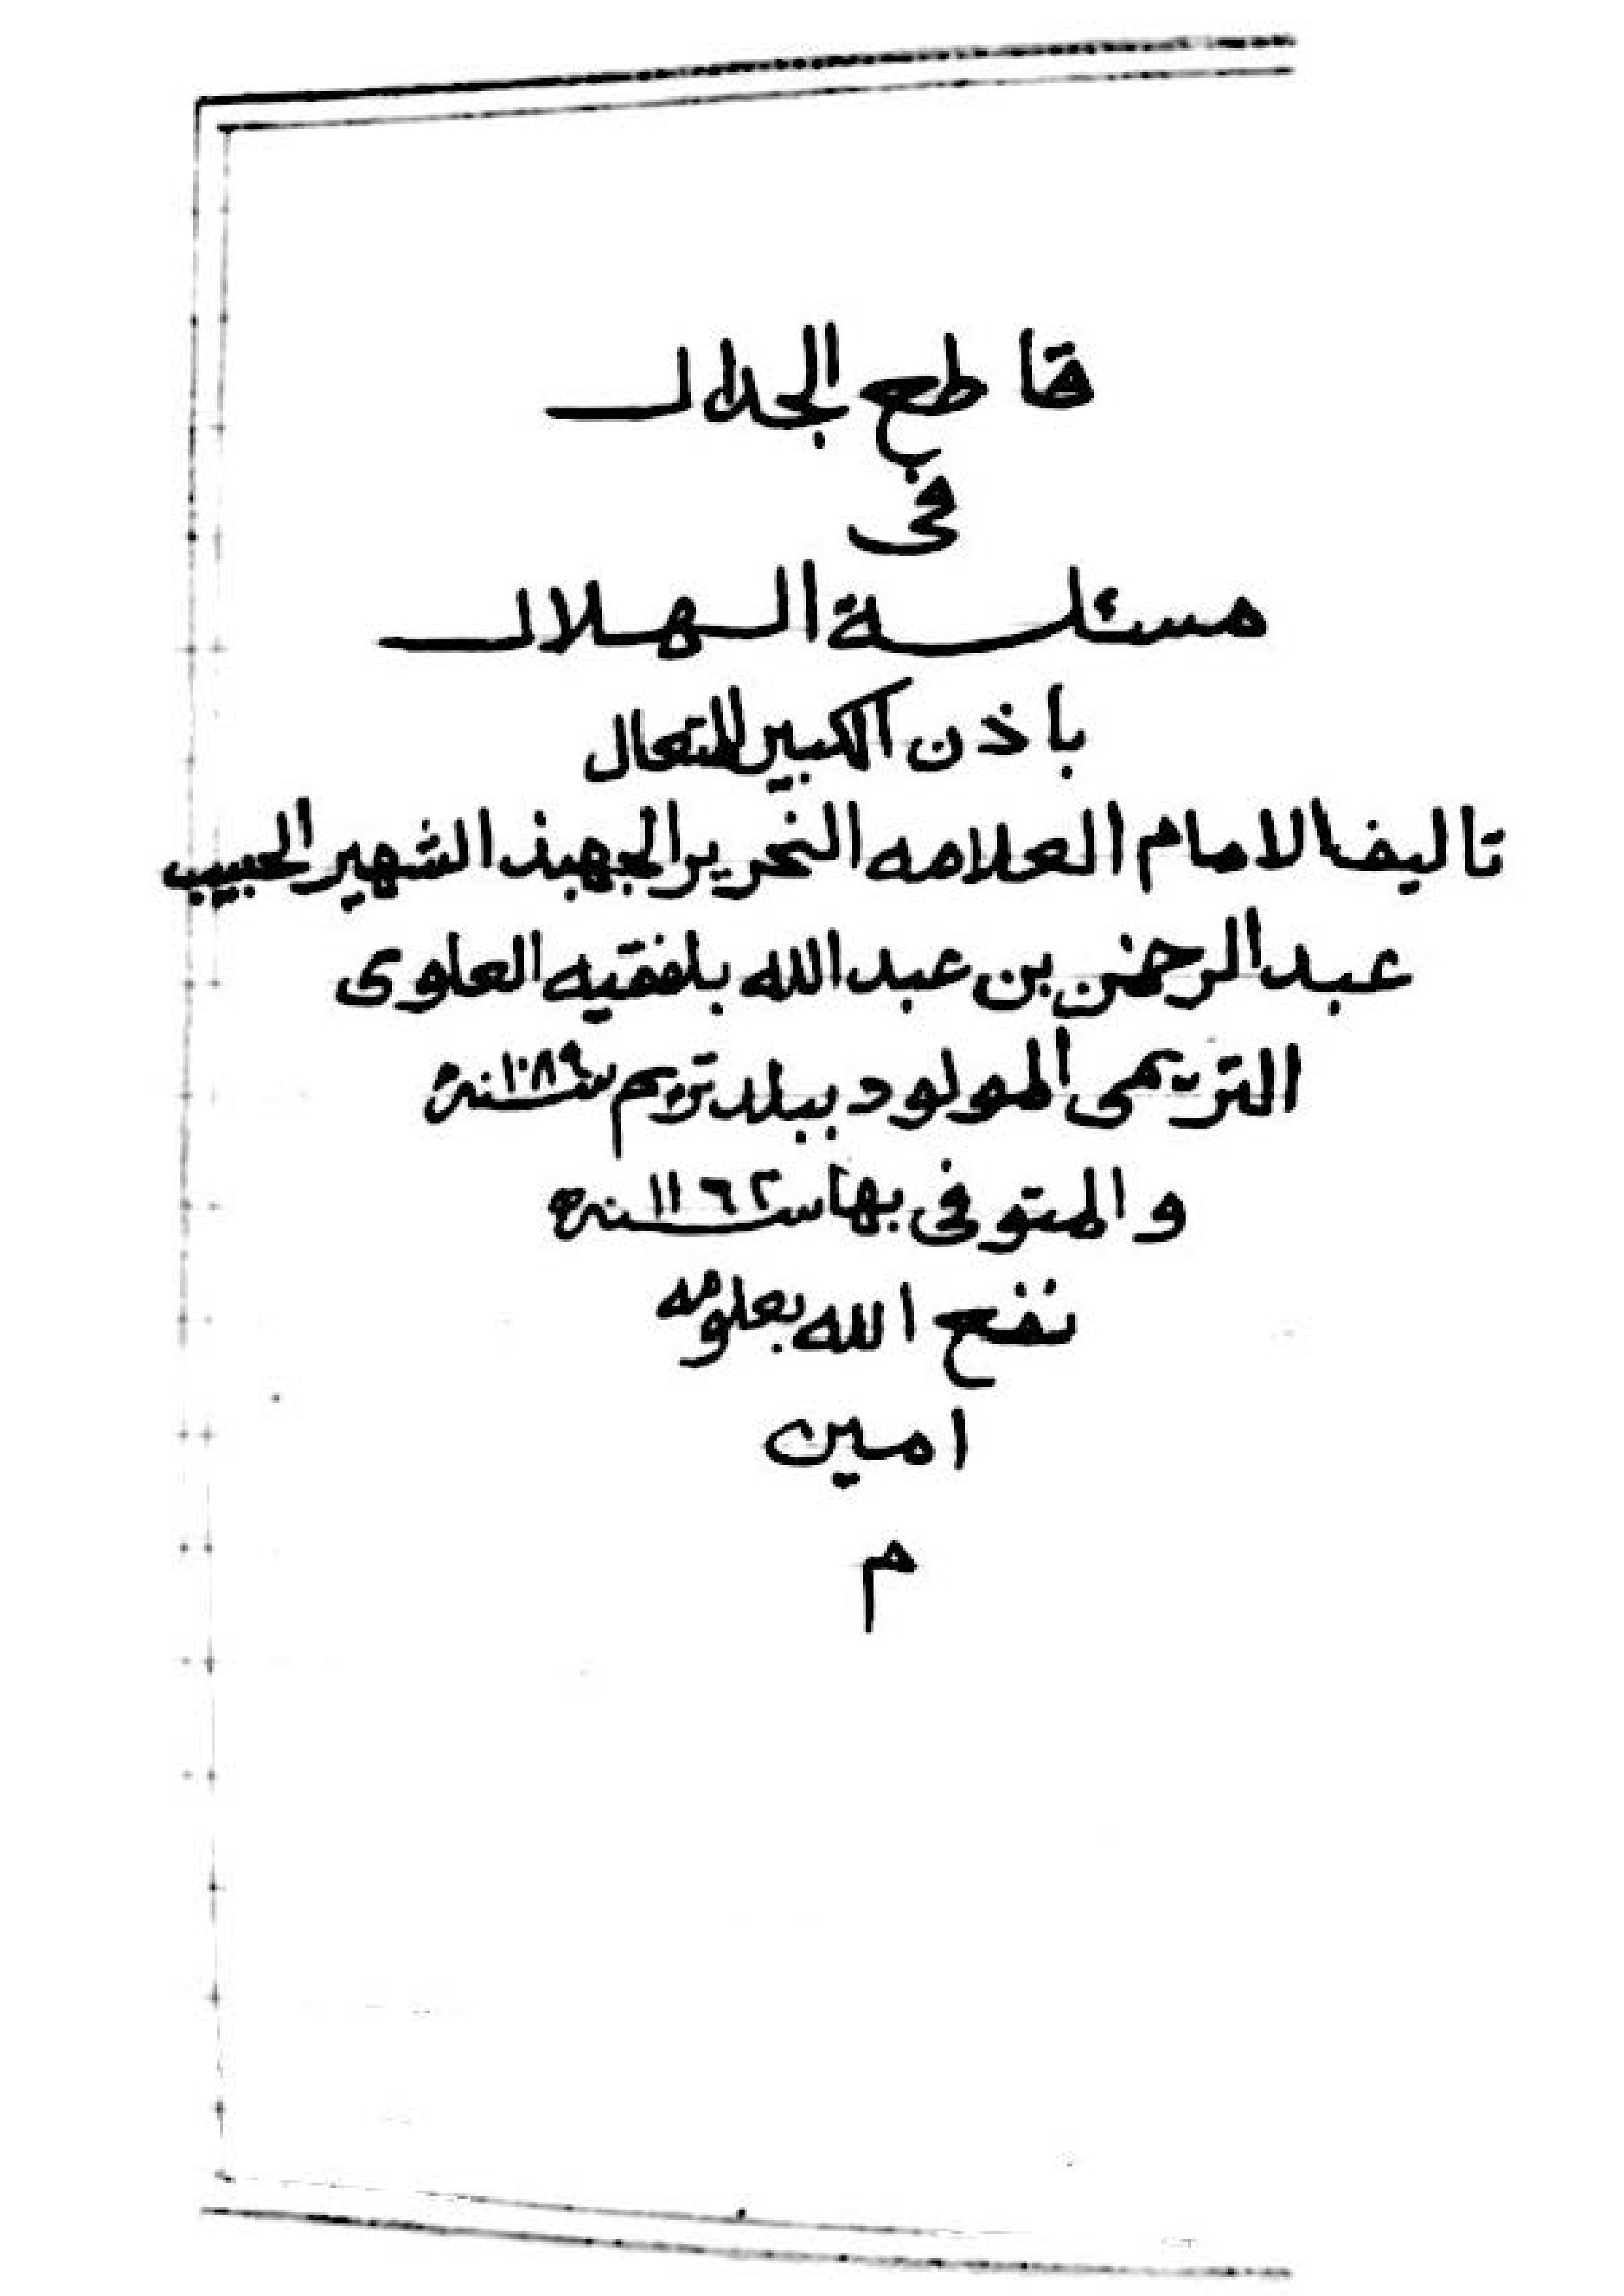 قاطع الجدال
فى
مسئلة الهلال
باذن الكبير المتعال
تاليف الامام العلامه النحرير الجهبذ الشهير الحبيب
عبد الرحمن بن عبد الله بلفقيه العلوى
التريمى المولود ببلد تريم سنة ١٠٨٩
والمتوفى بها سنة ١١٦٢
نفع الله بعلومه
امين
م